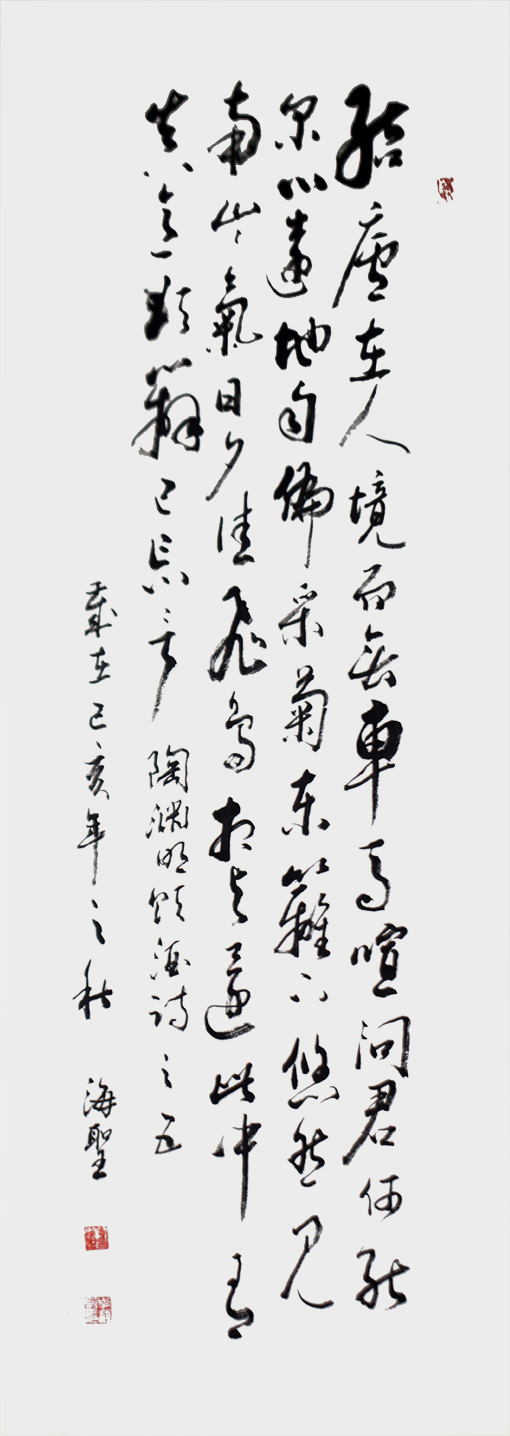 結廬在人境而無車馬喧問君何能
尔心遠地自偏采菊東籬下悠然見
南山々氣日夕佳飛鳥相與還此中有
真意欲辯已忘言 陶淵明飲酒詩之五
歲在己亥年之秋 海聖